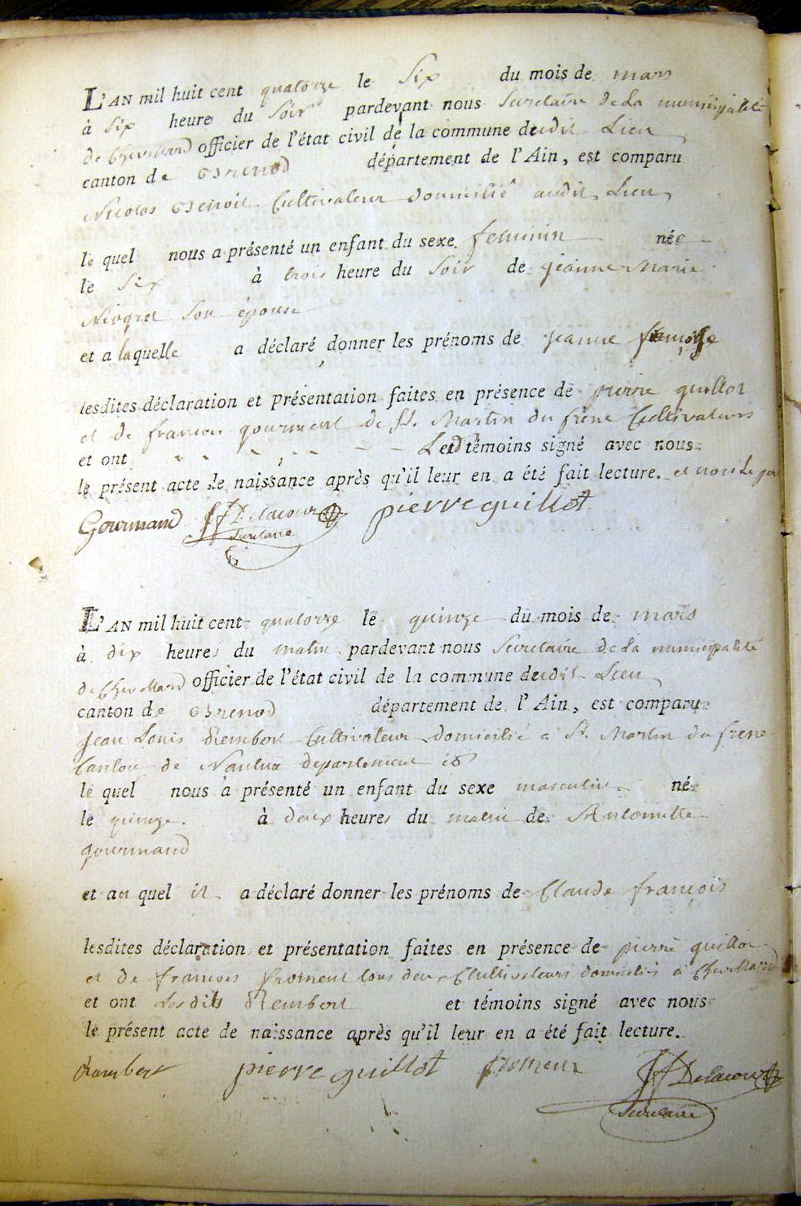 L'AN mil huit cent quatorze le Six du mois de mars
à Six heure du Soir pardevant nous Secretaire de la municipalité
de Chevillard officier de l'état civil de la commune dudit Lieu
canton de Brenod département de l'Ain, est comparu
Nicolas Benoit Cultivateur domicilié audit Lieu
le quel nous a présenté un enfant du sexe feminin née
le Six à trois heure du Soir de jeanne Marie
Niogret Son épouse
et a laquelle a déclaré donner les prénoms de jeanne françoise
lesdites déclaration et présentation faites en présence de pierre quillot
et de francois gourmand de St. Martin du frêne Cultivateurs
et ont Lesd témoins signé avec nous
le présent acte de naissance après qu'il leur en a été fait lecture. et non le
Gourmand JJ Delacour pierre guillot
Secretaire
L'AN mil huit cent quatorze le quinze du mois de mars
à dix heures du matin pardevant nous Secretaire de la municipalité
de Chevillard officier de l'état civil de la commune dudit Lieu
canton de Brenod département de l'Ain, est comparu
Jean Louis Rembert Cultivateur domicilié a St. Martin du frene
Canton de Nantua departement id
le quel nous a présenté un enfant du sexe masculin né
le quinze à deux heures du matin de Antoinette
gourmand
et au quel il a déclaré donner les prénoms de Claude françois
lesdites déclaration et présentation faites en présence de pierre quillot
et de francois froment tous deux Cultivateurs domiciliés a Chevillard
et ont Lesdits Rembert et témoins signé avec nous
le présent acte de naissance après qu'il leur en a été fait lecture.
Rambert pierre guillot froment JJ Delacour
Secretaire